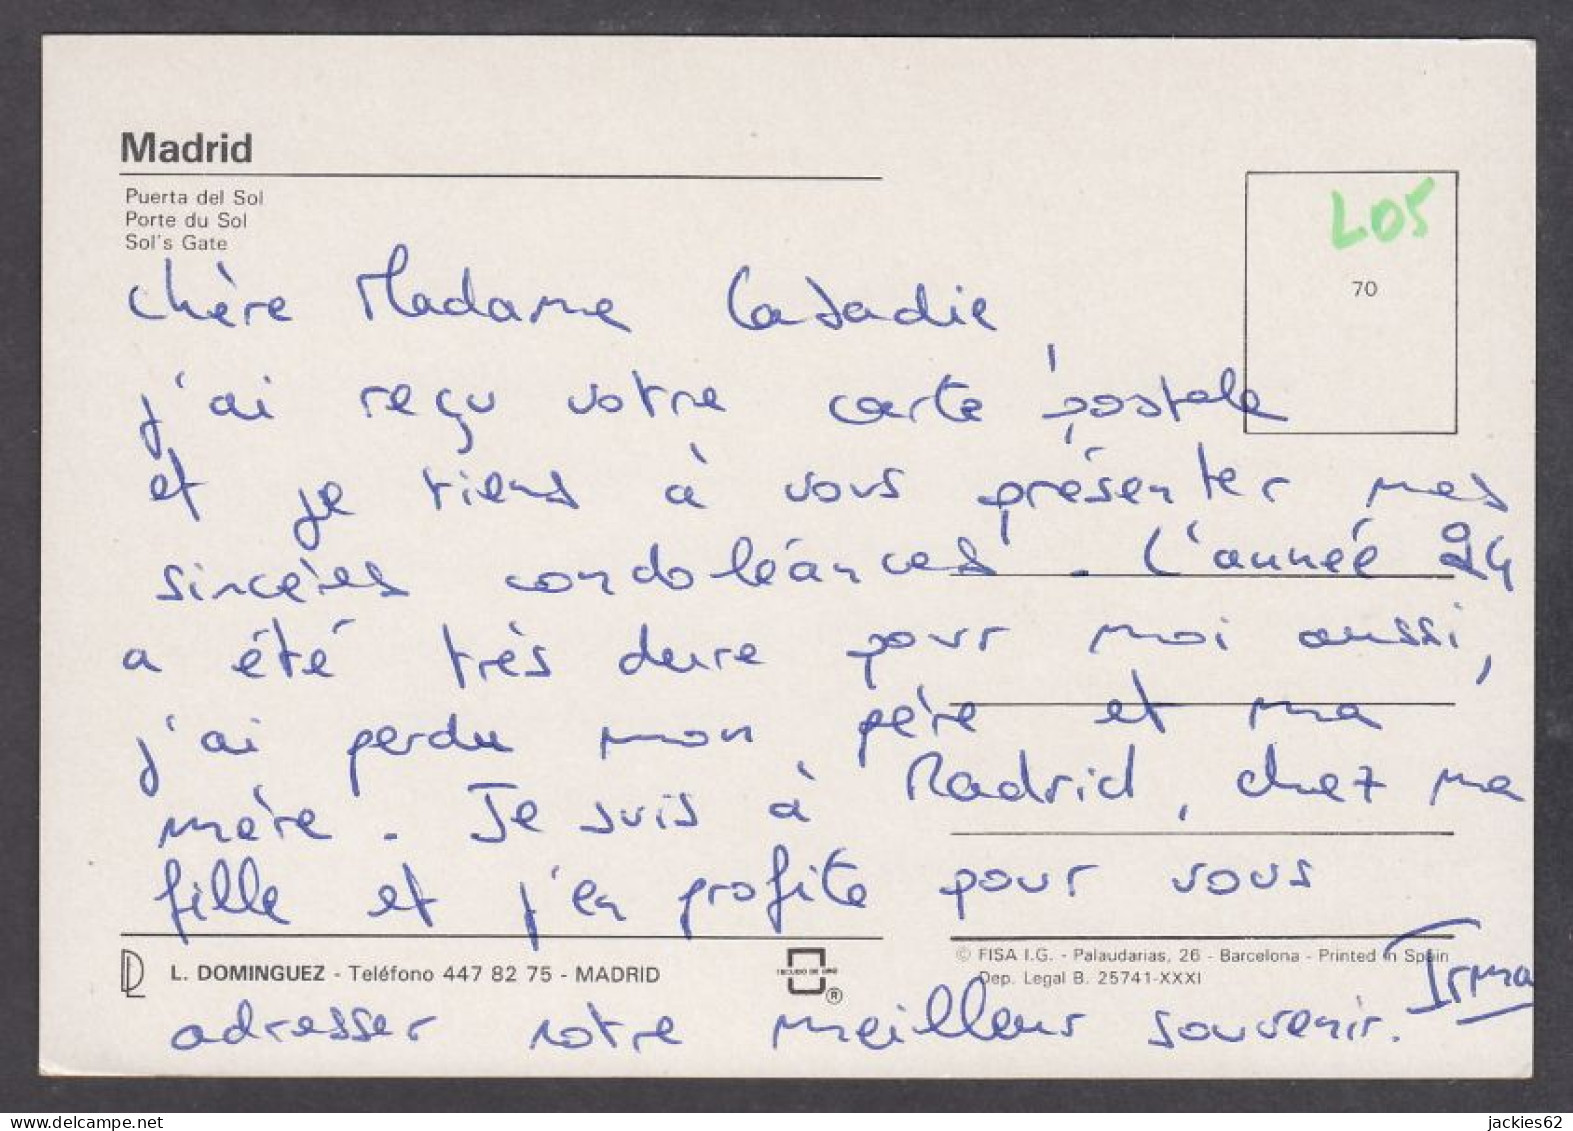 Madrid
Puerta del Sol
Porte du Sol
Sol's Gate
LOS
70
Chère Madame
j'ai reçu votre carte postale
et je tiens à vous présenter mes
sincères condoléances. L'année 94
a été très dure pour moi aussi,
j'ai perdu mon père et ma
mère. Je suis à Madrid, chez ma
fille et j'en profite pour vous
L. DOMINGUEZ - Teléfono 447 82 75 - MADRID
®
© FISA I.G. - Palaudarias, 26 - Barcelona - Printed in Spain
Dep. Legal B. 25741-XXXI
adresser notre meilleur souvenir. Irma
delcampe.net
jackies62